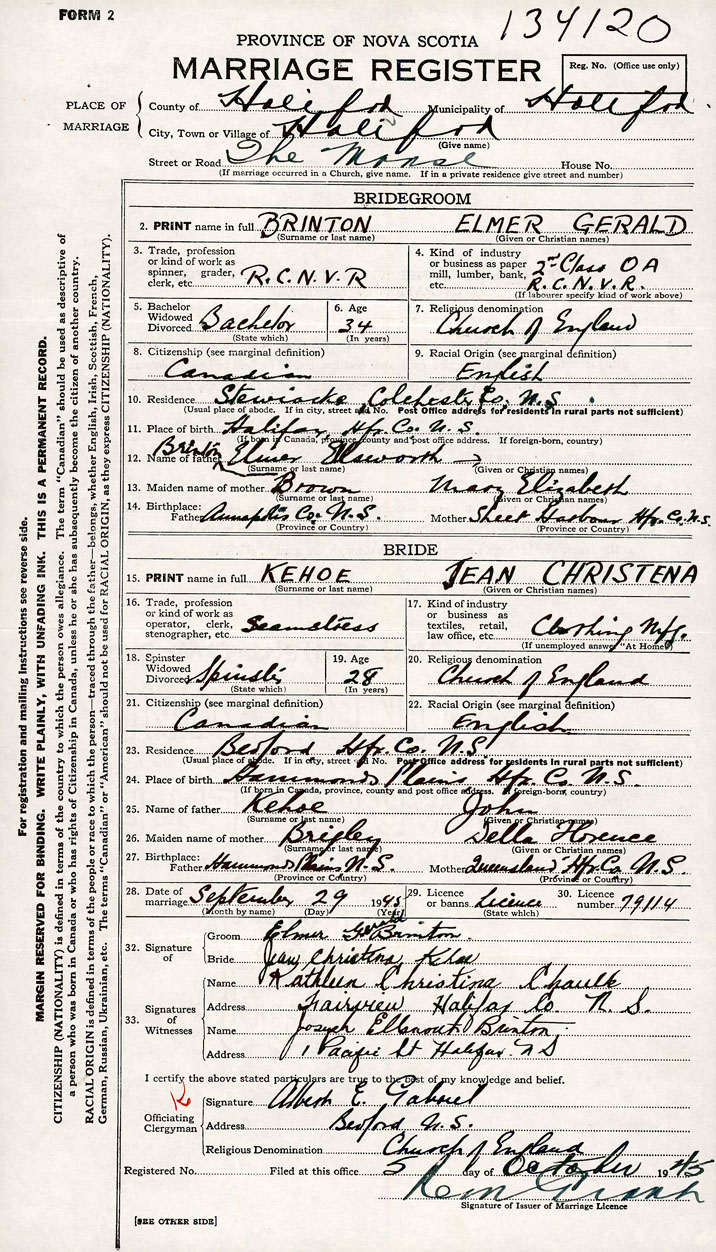 FORM 2
134120
PROVINCE OF NOVA SCOTIA
MARRIAGE REGISTER
Reg. No. (Office use only)
PLACE OF MARRIAGE
County of Halifax Municipality of Halifax
City, Town or Village of Halifax
(Give name)
Street or Road The Manse House No.
(If marriage occurred in a Church, give name. If in a private residence give street and number)
BRIDEGROOM
2. PRINT name in full BRINTON ELMER GERALD
(Surname or last name) (Given or Christian names)
3. Trade, profession or kind of work as spinner, grader, clerk, etc. R.C.N.V.R
4. Kind of industry or business as paper mill, lumber, bank, etc. 2nd Class O A R.C.N.V.R.
(If labourer specify kind of work above)
5. Bachelor Widowed Divorced Bachelor
(State which)
6. Age 34
(In years)
7. Religious denomination Church of England
8. Citizenship (see marginal definition) Canadian
9. Racial Origin (see marginal definition) English
10. Residence Stewiacke Colchester Co. N.S.
(Usual place of abode. If in city, street and No. Post Office address for residents in rural parts not sufficient)
11. Place of birth Halifax Hfx. Co. N.S.
(If born in Canada, province, county and post office address. If foreign-born, country)
12. Name of father Brinton Elmer Ellsworth
(Surname or last name) (Given or Christian names)
13. Maiden name of mother Brown Mary Elizabeth
(Surname or last name) (Given or Christian names)
14. Birthplace: Father Annapolis Co. N.S. Mother Sheet Harbour Hfx. Co. N.S.
(Province or Country) (Province or Country)
BRIDE
15. PRINT name in full KEHOE JEAN CHRISTENA
(Surname or last name) (Given or Christian names)
16. Trade, profession or kind of work as operator, clerk, stenographer, etc. Seamstress
17. Kind of industry or business as textiles, retail, law office, etc. Clothing Mfg.
(If unemployed answer "At Home")
18. Spinster Widowed Divorced Spinster
(State which)
19. Age 28
(In years)
20. Religious denomination Church of England
21. Citizenship (see marginal definition) Canadian
22. Racial Origin (see marginal definition) English
23. Residence Bedford Hfx. Co. N.S.
(Usual place of abode. If in city, street and No. Post Office address for residents in rural parts not sufficient)
24. Place of birth Hammonds Plains Hfx. Co. N.S.
(If born in Canada, province, county and post office address. If foreign-born, country)
25. Name of father Kehoe John
(Surname or last name) (Given or Christian names)
26. Maiden name of mother Brigley Della Florence
(Surname or last name) (Given or Christian names)
27. Birthplace: Father Hammonds Plains N.S. Mother Queensland Hfx Co N.S.
(Province or Country) (Province or Country)
28. Date of marriage September 29 1945
(Month by name) (Day) (Year)
29. Licence or banns Licence
(State which)
30. Licence number 79114
32. Signature of
Groom Elmer Gerald Brinton
Bride Jean Christina Kehoe
33. Signatures of Witnesses
Name Kathleen Christina Chaulk
Address Fairview Halifax Co. N.S.
Name Joseph Brinton
Address 1 Pacific St Halifax. N S
I certify the above stated particulars are true to the best of my knowledge and belief.
Officiating Clergyman
Signature Albert E. Gabriel
Address Bedford N.S.
Religious Denomination Church of England
Registered No. Filed at this office 5 day of October 1945
Signature of Issuer of Marriage Licence
[SEE OTHER SIDE]
For registration and mailing instructions see reverse side.
MARGIN RESERVED FOR BINDING. WRITE PLAINLY, WITH UNFADING INK. THIS IS A PERMANENT RECORD.
CITIZENSHIP (NATIONALITY) is defined in terms of the country to which the person owes allegiance. The term "Canadian" should be used as descriptive of
a person who was born in Canada or who has rights of Citizenship in Canada, unless he or she has subsequently become the citizen of another country.
RACIAL ORIGIN is defined in terms of the people or race to which the person—traced through the father—belongs, whether English, Irish, Scottish, French,
German, Russian, Ukrainian, etc. The terms "Canadian" or "American" should not be used for RACIAL ORIGIN, as they express CITIZENSHIP (NATIONALITY).